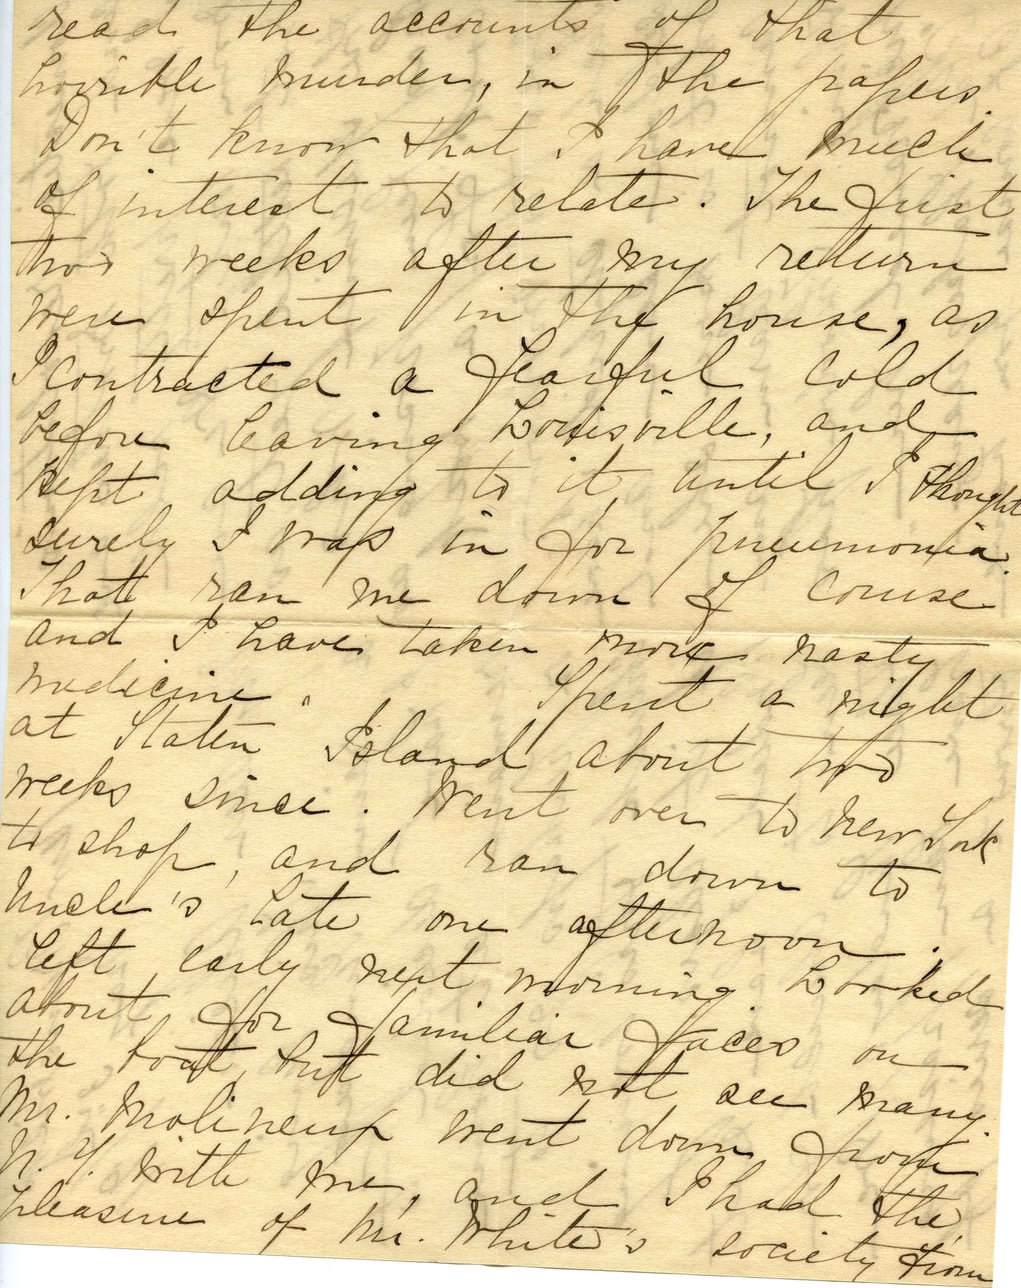 read the accounts of that
horrible murder, in the papers.
Don't know that I have much
of interest to relate. The first
two weeks after my return
were spent in the house, as
I contracted a fearful cold
before leaving Louisville, and
kept adding to it, until I thought
surely I was in for pneumonia.
That ran me down of course
and I have taken more nasty
medicine. Spent a night
at Staten Island about two
weeks since. Went over to New York
to shop, and ran down to
Uncle's late one afternoon.
Left early next morning. Looked
about for familiar faces on
the boat, but did not see many.
Mr. Molineux went down from
N. Y. with me, and I had the
pleasure of Mr. White's society from